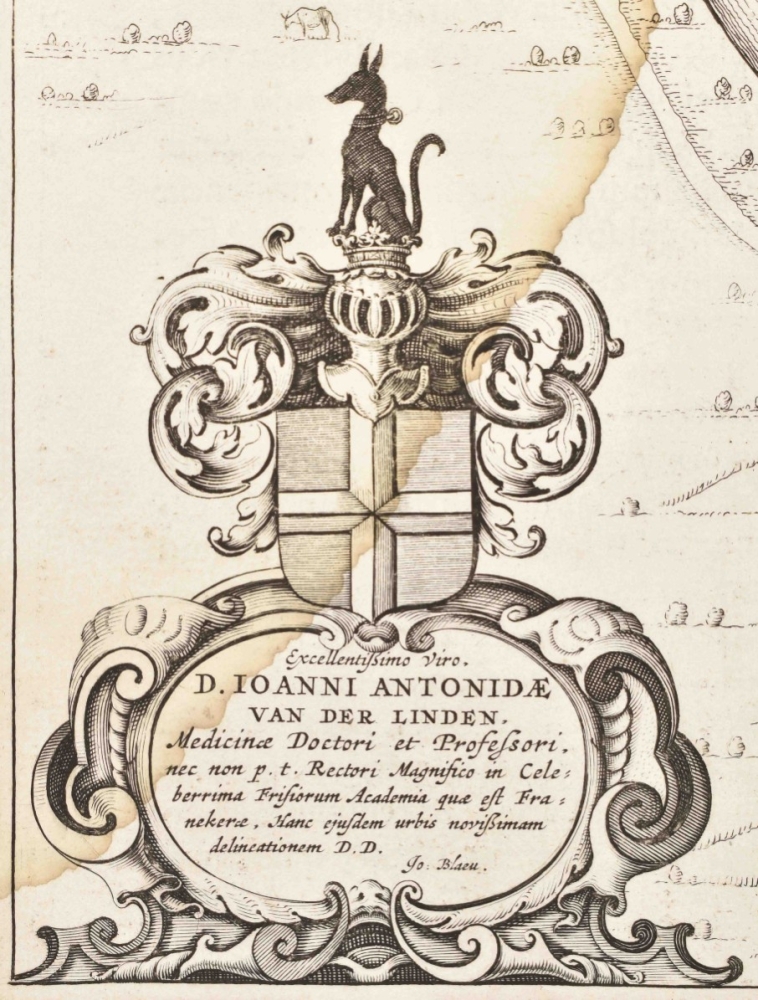 Excellentiſsimo Viro.
D. IOANNI ANTONIDÆ
VAN DER LINDEN.
Medicinæ Doctori et Profeſsori,
nec non p. t. Rectori Magnifico in Cele:
berrima Friſiorum Academia quæ eſt Fra:
nekeræ, Hanc ejuſdem urbis noviſsimam
delineationem D. D.
Jo: Blaeu.